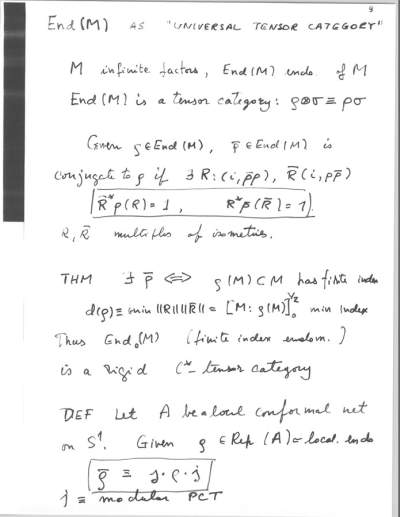 8
End(M) AS "UNIVERSAL TENSOR CATEGORY"
M infinite factors, End(M) endo. of M
End(M) is a tensor category: ρ⊗σ ≡ ρσ
Given ρ∈End(M), ρ̄∈End(M) is
conjugate to ρ if ∃ R:(i,ρ̄ρ), R̄(i,ρρ̄)
R̄*ρ(R)=1, R*ρ̄(R̄)=1
R, R̄ multiples of isometries.
THM ∃ ρ̄ ⟺ ρ(M)⊂M has finite index
d(ρ)≡min ||R|| ||R̄|| = [M:ρ(M)]₀^½ min index
Thus End₀(M) (finite index endom.)
is a rigid C*-tensor category
DEF Let A be a local conformal net
on S¹. Given ρ ∈ Rep(A)≃local. endo
ρ̄ ≡ j·ρ·j
j ≡ modular PCT